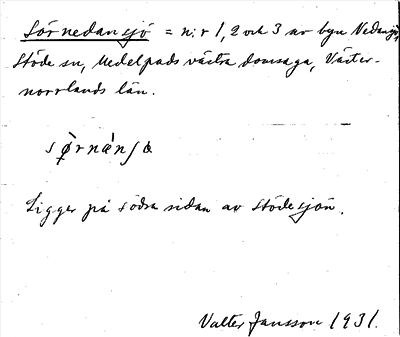 Sörnedansjö = n:r 1, 2 och 3 av byn Nedansjö,
Stöde sn, Medelpads västra domsaga, Väster-
norrlands län.
Ligger på södra sidan av Stödesjön.
Valter Jansson 1931.